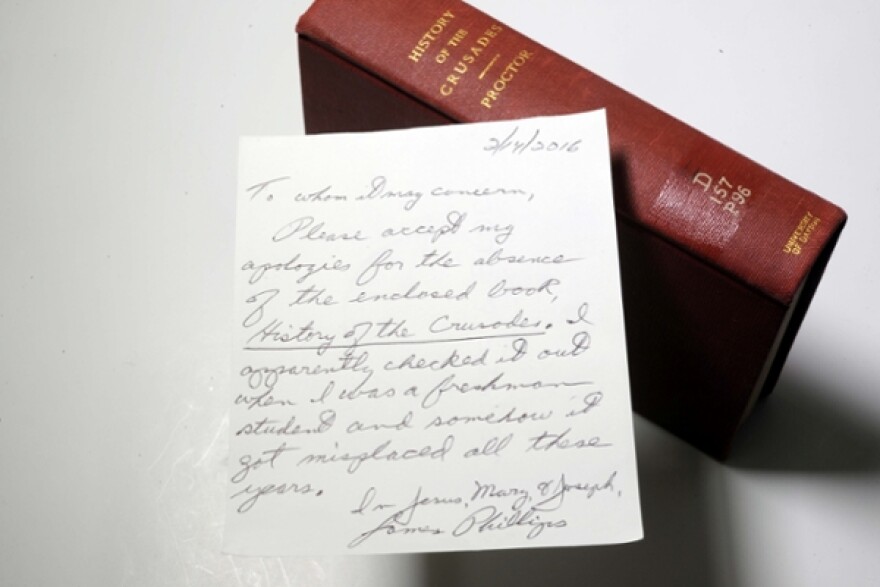 HISTORY
OF THE
CRUSADES
PROCTOR
D
157
P96
UNIVERSITY
OF DAYTON
2/14/2016
To whom it may concern,
Please accept my
apologies for the absence
of the enclosed book,
History of the Crusades. I
apparently checked it out
when I was a freshman
student and somehow it
got misplaced all these
years.
In Jesus, Mary, & Joseph,
James Phillips